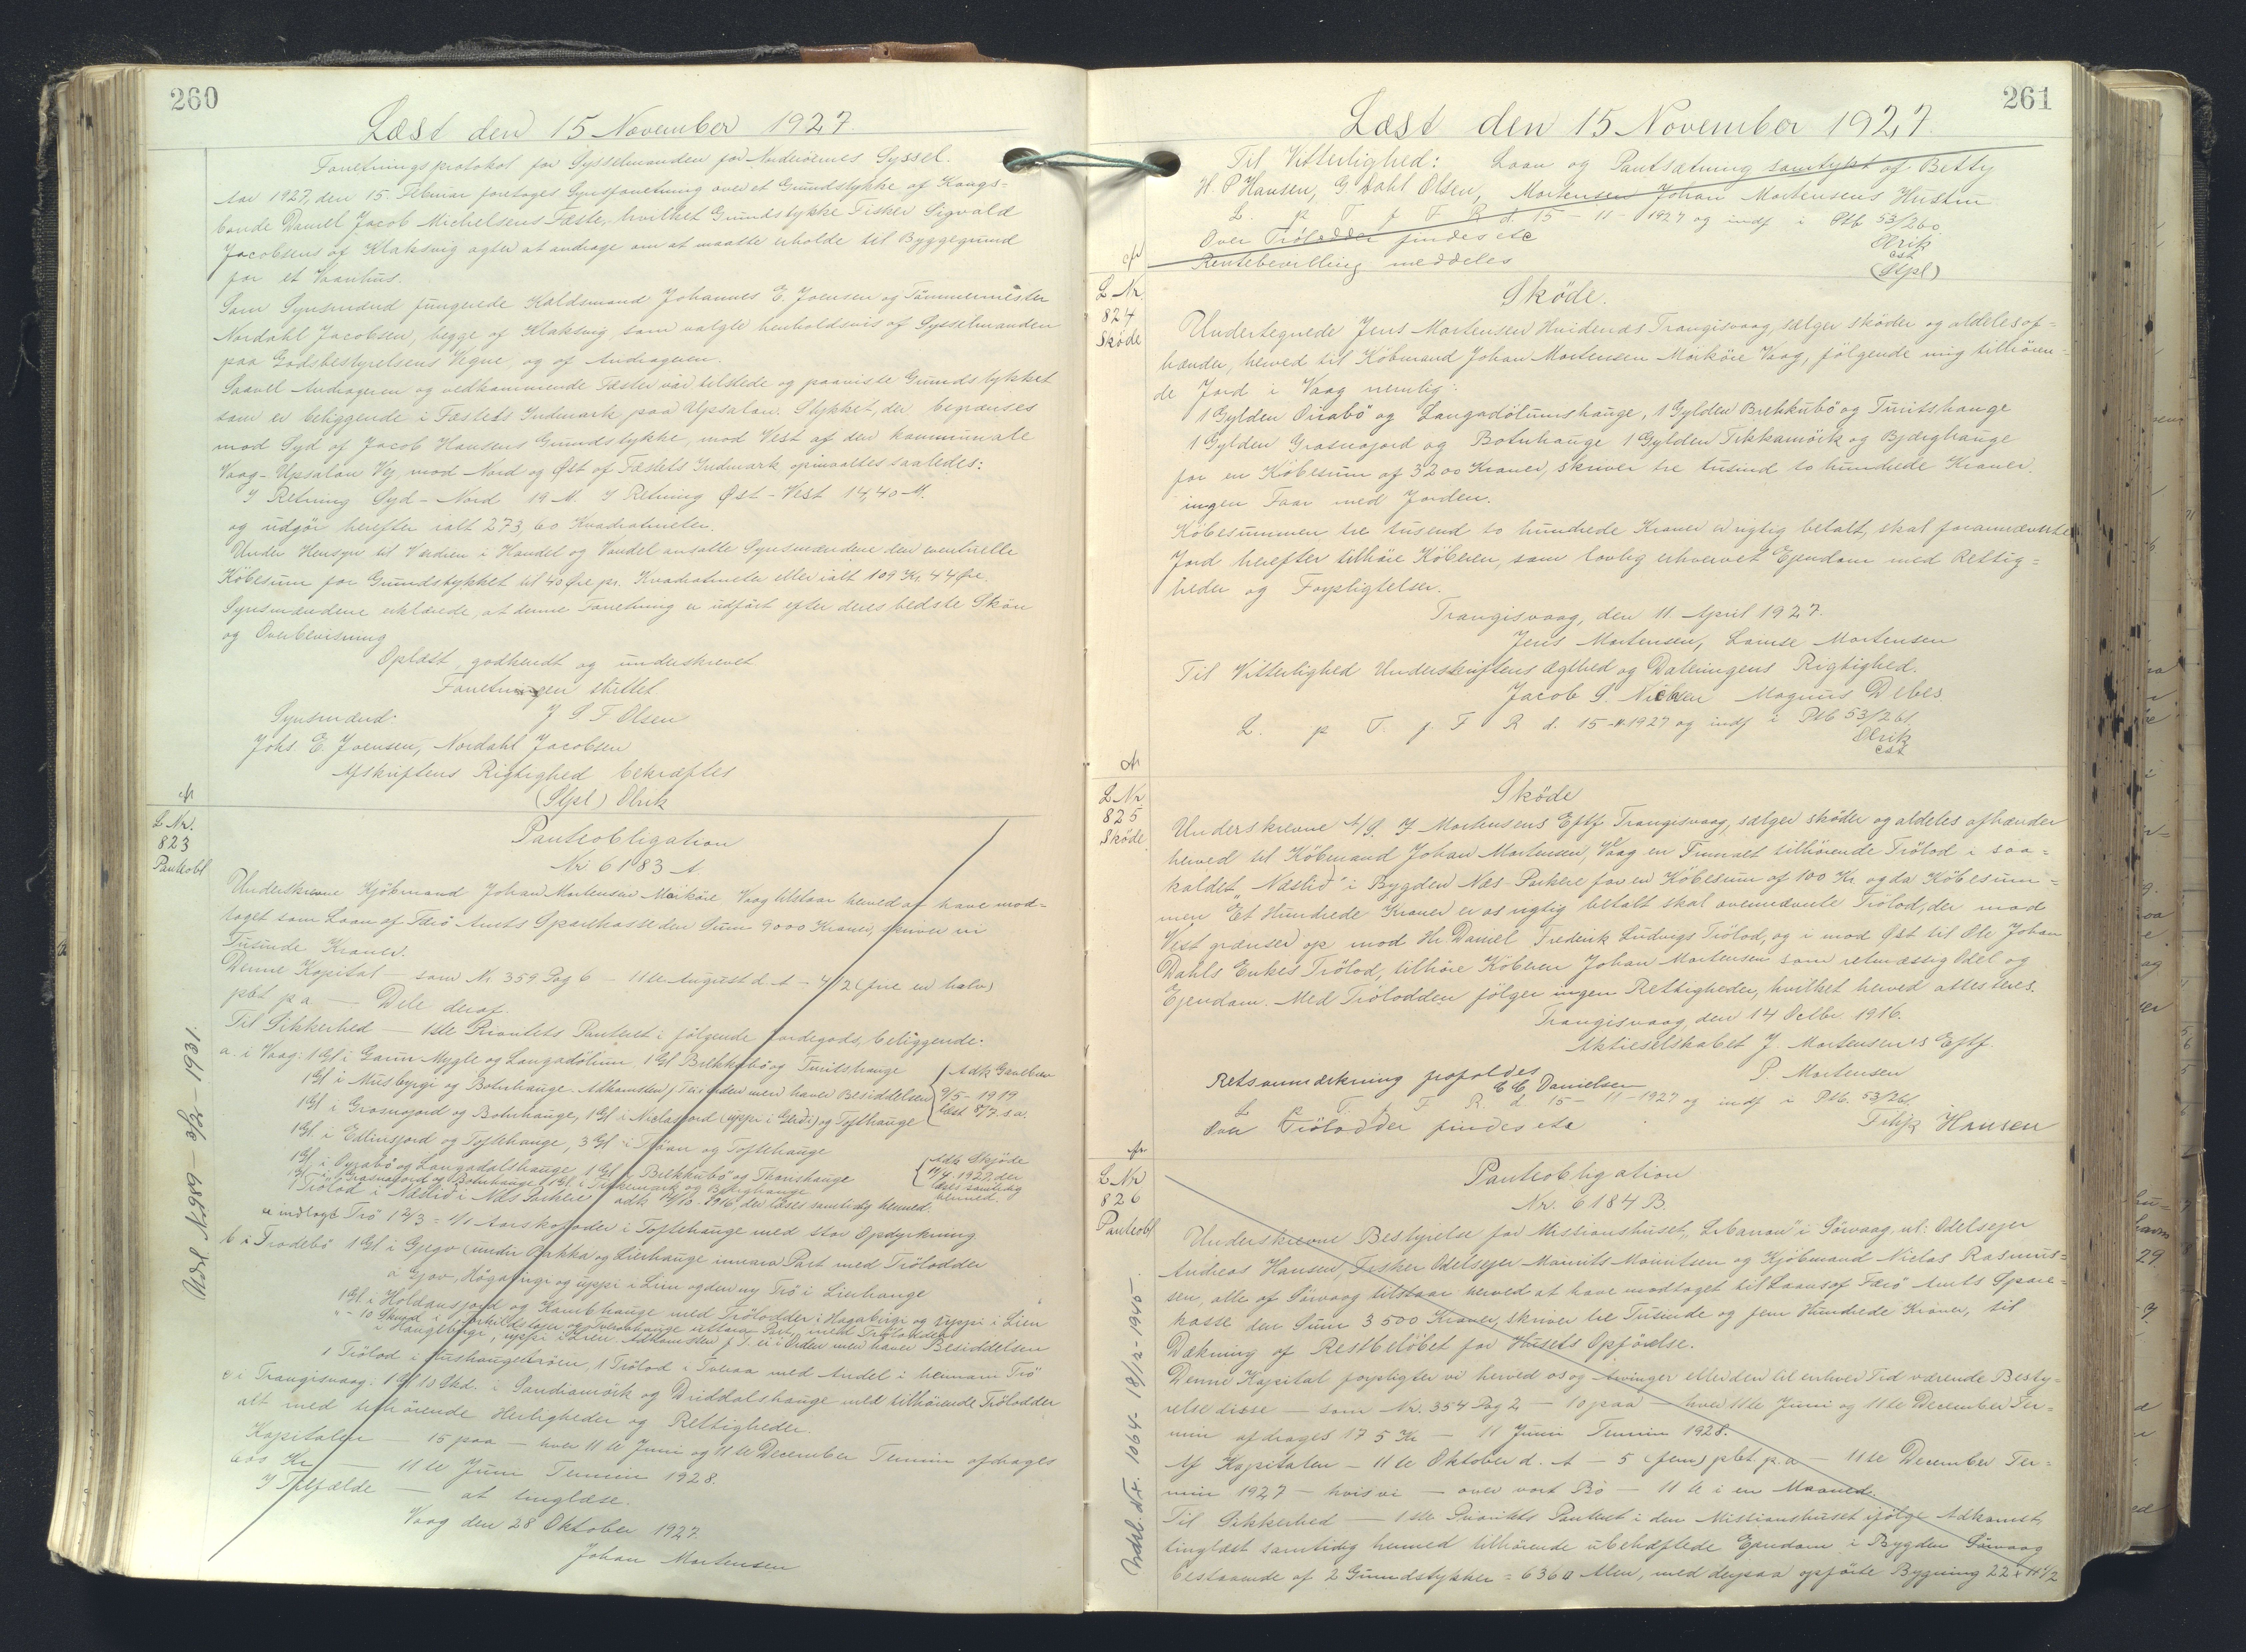 260
Læst den 15 November 1927
Forretningsprotokol for Sysselmanden for Norderöernes Syssel.
Aar 1927, den 15. Februar foretoges Synsforretning over et Grundstykke af Kongs-
bonde Daniel Jacob Michelsens Fæste, hvilket Grundstykke Fisker Sigvald
Jacobsens af Klaksvig agter at andrage om at maatte erholde til Byggegrund
for et Vaanhus.
Som Synsmænd fungerede Koldsmand Johannes E. Joensen og Tömmermester
Nordahl Jacobsen, begge af Klaksvig, som valgte henholdsvis af Sysselmanden
paa Godsbestyrelsens Vegne, og af Andrageren.
Saavel Andrageren og vedkommende Fæster var tilstede og paaviste Grundstykket
som er beliggende i Fæstets Indmark paa Upsalon. Stykket, der begrænses
mod Syd af Jacob Hansens Grundstykke, mod Vest af den kommunale
Vaag-Upsalon Vej, mod Nord og Øst af Fæstets Indmark opmaaltes saaledes:
I Retning Syd - Nord 19 M. I Retning Øst - Vest 14,40 M.
og udgör herefter ialt 273,60 Kvadratmeter.
Under Hensyn til Værdien i Handel og Vandel ansatte Synsmændene den eventuelle
Köbesum for Grundstykket til 40 Øre pr. Kvadratmeter eller ialt 109 Kr. 44 Øre.
Synsmændene erklærede, at denne Forretning er udfört efter deres bedste Skön
og Overbevisning
Oplæst, godkendt og underskrevet
Forretningen sluttet.
Synsmænd: J S F Olsen
Johs E. Joensen, Nordahl Jacobsen
Afskriftens Rigtighed bekræftes
(Stpl) Olrik
L Nr.
823
Panteobl
Panteobligation
Nr 6183 A
Underskrevne Kjöbmand Johan Mortensen Mörköre Vaag tilstaar herved at have mod-
taget som Laan af Færö Amts Sparekasse den Sum 9000 Kroner, skriver ni
Tusinde Kroner.
Denne Kapital — som Nr. 359 Pag 6 — 11te August d. A - 4 1/2 (fire en halv)
pct p a — Dele deraf.
Til Sikkerhed — 1ste Prioritets Panteret i fölgende Jordegods, beliggende.
a. i Vaag: 1 Gl i Garun Mygle og Langadölum, 1 Gl Brekkubö og Tuntshauge
1 Gl i Musbyrgi og Botnhauge. Adkomsten f T. ei i Orden men haver Besiddelsen
Adk Gavebrev 9/5 - 1919 læst 8/7 s.a.
1 Gl i Grosnojord og Botnhauge, 1 Gl i Niclasjord (uppi i Gerdi) og Toftehauge
1 Gl i Edlinsjord og Toftehauge, 3 Gl i Tröan og Toftehauge
1 Gl i Oyrabö og Langadalshauge, 1 Gl i Brekkubö og Thomshauge
Adk Skjöde 11/4. 1927, der læses samtidig hermed.
1 Gl i Grasnojord og Botnhauge 1 Gl. i Tikkemark og Bjerghauge
1 Trölod i Næslid i Næs Porkere adk 14/10 - 1916, der læses samtidig hermed.
en indlagt Trö 12/3 = 1/1 Aars kofoder i Toftehauge med stor Opdyrkning
b i Frodebö 1 Gl i Gjegv (undir Brekka og Lierhauge innara Part med Trölodder
a Gjov, Högabirgi og uppi i Lien og den ny Trö i Lierhauge
1 Gl. i Holdansjord og Kambhauge med Trölodder i Hagabirgi og uppi i Lien
i Haugebirgi, uppi i Lien. Adkomsten f T. ei i Orden men haver Besiddelsen
1 Trölod i Hushaugetröen, 1 Trölod i Tveraa med Andel i hennam Trö
c i Trangisvaag: 1 Gl 10 Skd. i Sandiamörk og Driddalshauge med tilhörende Trölodder
alt med tilhörende Herligheder og Rettigheder.
Kapitalen — 15 paa — hver 11te Juni og 11te December Termin afdrages
600 Kr — 11te Juni Termin 1928.
I Tilfælde — at tinglæse.
Vaag den 28 Oktober 1927
Johan Mortensen
Udsl. Nr 989 — 3/2 — 1931.
261
Læst den 15 November 1927.
Til Vitterlighed: Laan og Pantsætning samtykt af Betty
H. P Hansen, G. Dahl Olsen, Mortensen Johan Mortensens Hustru
L. p T f F R d. 15 - 11 - 1927 og indf i Ptb 53/260
Over Trölodder findes etc
Olrik
cst
Rentebevilling meddeles
(Stpl)
L Nr.
824
Sköde
Sköde.
Undertegnede Jens Mortensen Hvidenæs Trangisvaag, sælger sköder og aldeles af-
hænder, herved til Köbmand Johan Mortensen Mörköre Vaag, fölgende mig tilhören-
de Jord i Vaag nemlig:
1 Gylden Oirabö og Langadölumshauge, 1 Gylden Brekkubö og Tuntshauge
1 Gylden Grasnojord og Botnhauge 1 Gylden Tikkamörk og Bjerghauge
for en Köbesum af 3200 Kroner, skriver tre tusind to hundrede Kroner.
ingen Faar med Jorden.
Köbesummen tre tusend to hundrede Kroner er rigtig betalt, skal forannævnte
Jord herefter tilhöre Köberen, som lovlig erhvervet Ejendom med Rettig-
heder og Forpligtelser.
Trangisvaag, den 11. April 1927.
Jens Mortensen, Lovise Mortensen
Til Vitterlighed Underskriftens Ægthed og Dateringens Rigtighed.
Jacob S. Nielsen Magnus Debes
L. p T. f. F R d. 15 - 11 1927 og indf i Ptb 53/261.
Olrik
cst
L Nr
825
Sköde
Sköde
Underskrevne A/S. J Mortensens Eftf Trangisvaag, sælger sköder og aldeles afhænder
herved til Köbmand Johan Mortensen, Vaag en Firmaet tilhörende Trölod i saa-
kaldet "Næslid" i Bygden Næs - Porkere for en Köbesum af 100 Kr og da Köbesum-
men Et Hundrede Kroner er os rigtig betalt skal ovennævnte Trölod, der mod
Vest grænser op mod Hr Daniel Frederik Ludvigs Trölod, og i mod Øst til Ole Johan
Dahls Enkes Trölod, tilhöre Köberen Johan Mortensen som retmæssig Odel og
Ejendom. Med Trölodden fölger ingen Rettigheder, hvilket herved attesteres.
Trangisvaag, den 14 Octbr. 1916.
Aktieselskabet J. Mortensen's Eftf.
P. Mortensen
Retsanmærkning frafaldes
E C, Danielsen
L p T. f F R d 15 - 11 - 1927 og indf i Ptb. 53/261
Over Trölodder findes etc
Hansen
L Nr
826
Panteobl
Panteobligation
Nr. 6184 B.
Underskrevne Bestyrelse for Missionshuset "Libanon" i Sörvaag, nl: Odelsejer
Andreas Hansen, Fisker Odelsejer Mourits Mouritsen og Kjöbmand Niclas Rasmus-
sen, alle af Sörvaag tilstaar herved at have modtaget til Laans af Færö Amts Spare-
kasse den Sum 3500 Kroner, skriver tre Tusinde og fem Hundrede Kroner, til
Dækning af Restbelöbet for Husets Opförelse.
Denne Kapital forpligter vi herved os og Arvinger eller den til enhver Tid værende Besty-
relse disse — som Nr. 354 Pag 2 — 10 paa — hver 11te Juni og 11te December Ter-
min afdrages 175 Kr — 11 Juni Termin 1928.
Af Kapitalen — 11te Oktober d. A — 5 (fem) pct. p. a — 11te December Ter-
min 1927 — hvis vi — over vort Bo — 11te i en Maaned.
Til Sikkerhed — 1ste Prioritets Panteret i den Missionshuset ifölge Adkomst,
tinglæst samtidig hermed tilhörende ubehæftede Ejendom i Bygden Sörvaag
bestaaende af 2 Grundstykker = 6360 Alen, med derpaa opförte Bygning 22 x 11 1/2
Udsl. Nr. 1064 - 18/12 - 1945.